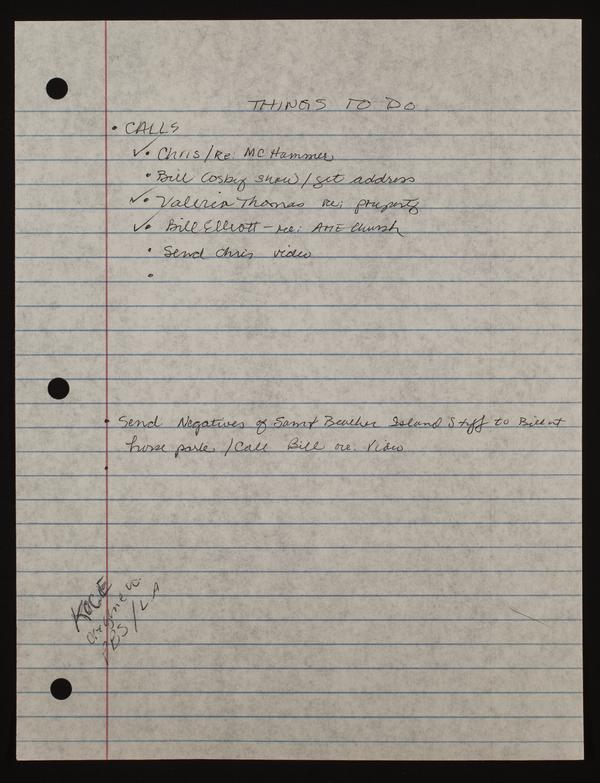 THINGS TO DO
• CALLS
✓• Chris/Re: MC Hammer
• Bill Cosby show/get address
✓• Valerie Thomas re: property
✓• Bill Elliott - re: AME Church
• Send Chris video
•
• Send Negatives of Island Stuff to Bill at
horse park /Call Bill re: Video
•
KOCE
PBS/LA